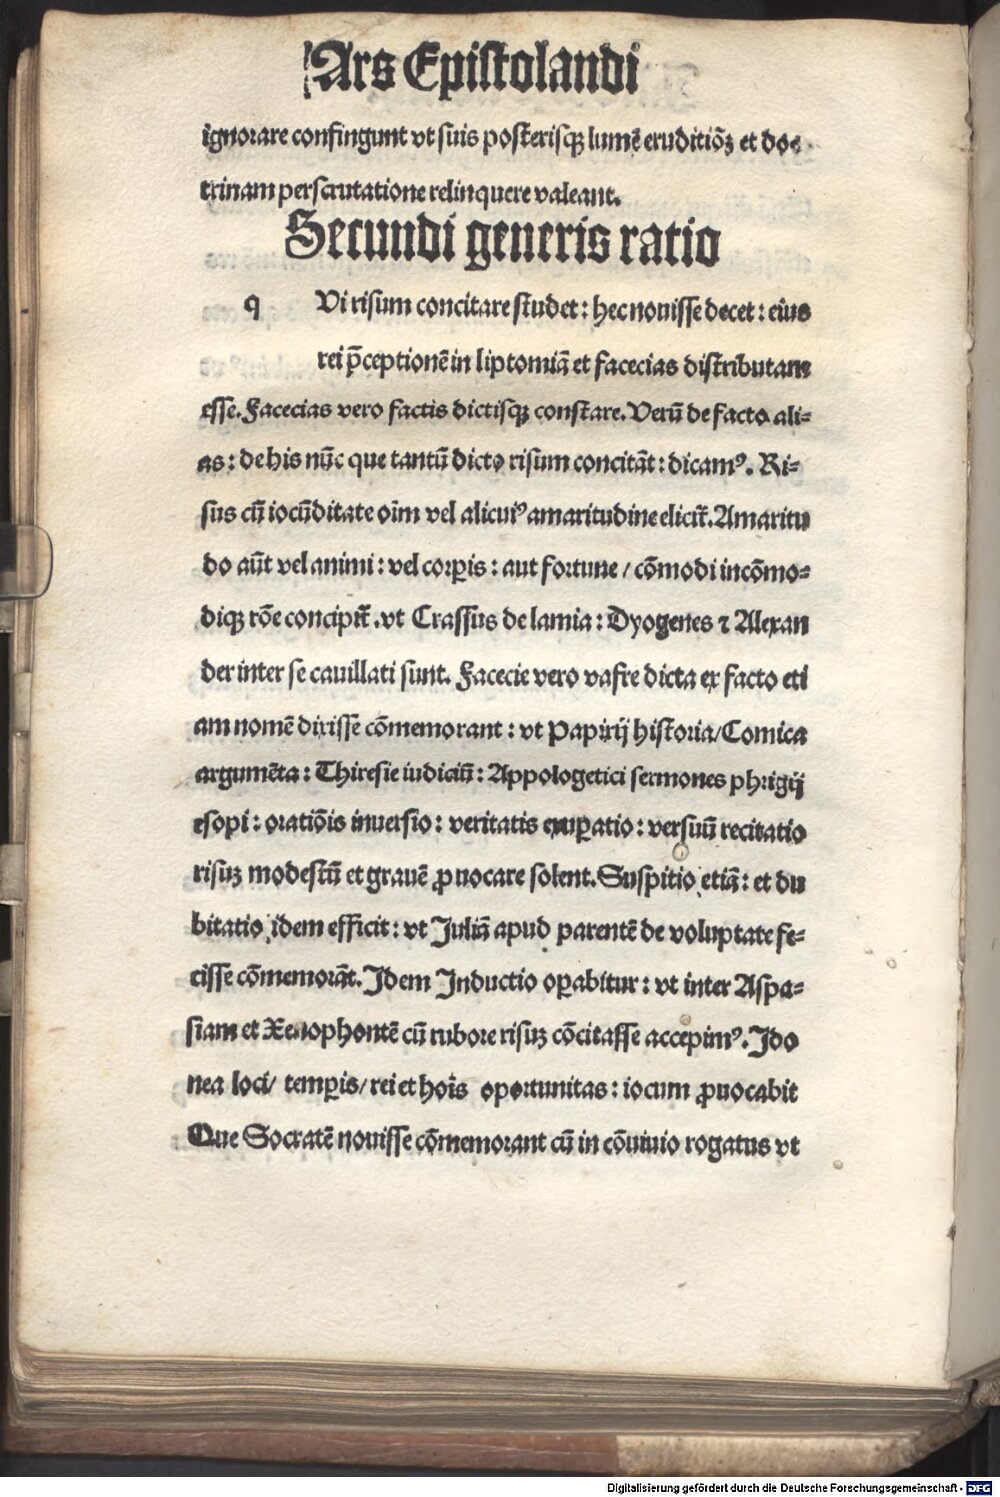 Ars Epistolandi
ignorare confingunt vt suis posterisqꝫ lumē eruditiōꝫ et doc
trinam perscrutatione relinquere valeant.
Secundi generis ratio
q Vi risum concitare studet: hec nouisse decet: eius
rei p̄ceptionē in liptomiā et facecias distributam
esse. Facecias vero factis dictisqꝫ constare. Verū de facto ali⸗
as: de his nūc que tantū dicto risum concitāt: dicamꝰ. Ri⸗
sus cū iocūditate oīm vel alicuiꝰ amaritudine elicit̄. Amaritu
do aūt vel animi: vel corꝑis: aut fortune / cōmodi incōmo⸗
diqꝫ rōe concipit̄. vt Crassus de lamia: Dyogenes ⁊ Alexan
der inter se cauillati sunt. Facecie vero vafre dicta ex facto eti
am nomē dixisse cōmemorant: vt Papirij historia/ Comica
argumēta: Thiresie iudiciū: Appologetici sermones phrigij
esopi: oratiōis inuersio: veritatis exuꝑatio: versuū recitatio
risuꝫ modestū et grauē ꝓuocare solent. Suspitio etiā: et du
bitatio idem efficit: vt Juliā apud parentē de voluptate fe⸗
cisse cōmemorāt. Idem Inductio oꝑabitur: vt inter Aspa⸗
siam et Xenophontē cū rubore risuꝫ cōcitasse accepimꝰ. Ido
nea loci/ temꝑis/ rei et hoīs oportunitas: iocum ꝓuocabit
Que Socratē nouisse cōmemorant cū in cōuiuio rogatus vt
Digitalisierung gefördert durch die Deutsche Forschungsgemeinschaft - DFG